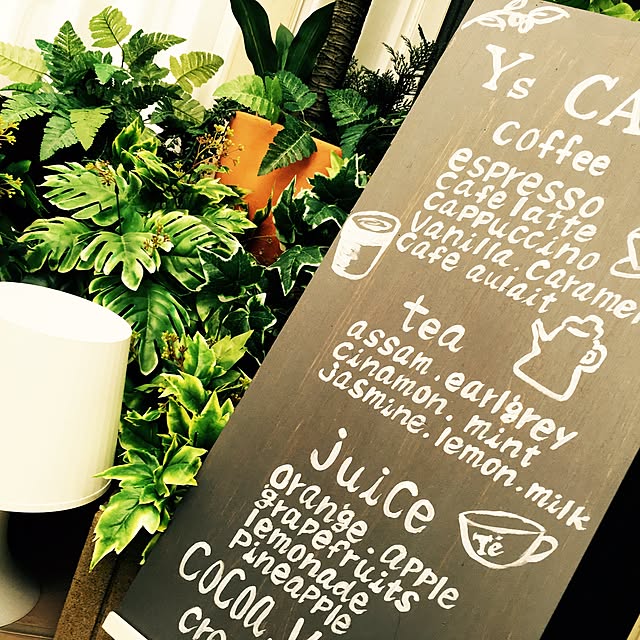 Ys CA
coffee
espresso
cafe latte
cappuccino
vanilla. caramel
cafe aulait
tea
assam. earlgrey
cinamon. mint
jasmine. lemon. milk
juice
orange. apple
grapefruits
lemonade
pineapple
Té
COCOA
cro